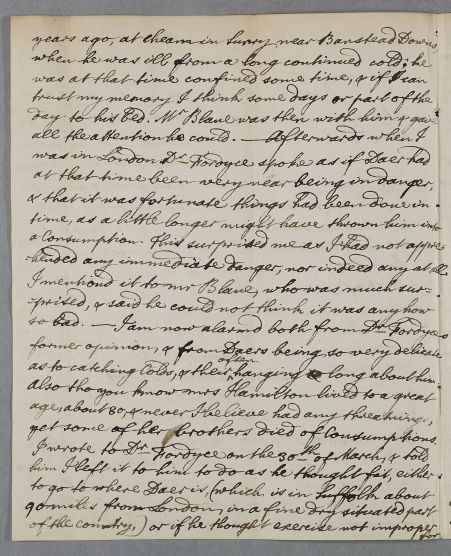 years ago, at Cheam in Surry near Banstead Downs,
when he was ill from a long continued cold; he
was at that time confined some time, & if I can
trust my memory I think some days or part of the
day to his bed. Mr Blane was then with him & gave
all the attention he could. — Afterwards when I
was in London Dr Fordyce spoke as if Daer had
at that time been very near being in danger,
& that it was fortunate things had been done in
time, as a little longer might have thrown him into
a Consumption. This surprised me as I had not appre-
-hended any immediate danger, nor indeed any at all.
I mentiond it to mr Blane, who was much sur-
-prised, & said he could not think it was any how
so bad. — I am now alarmd both from Dr Fordyces
former opinion, & from Daers being so very delicate
as to catching Colds, & their often hanging so long about him
also tho you know mrs Hamilton lived to a great
age, about 80, & never I believe had any threatnings,
yet some of her brothers died of Consumptions.
I wrote to Dr Fordyce on the 30th of March, & told
him I left it to him to do as he thought fit, either
to go to where Daer is, (which is in Suffolk about
90 miles from London, in a fine dry situated part
of the country,) or if he thought exercise not improper
for